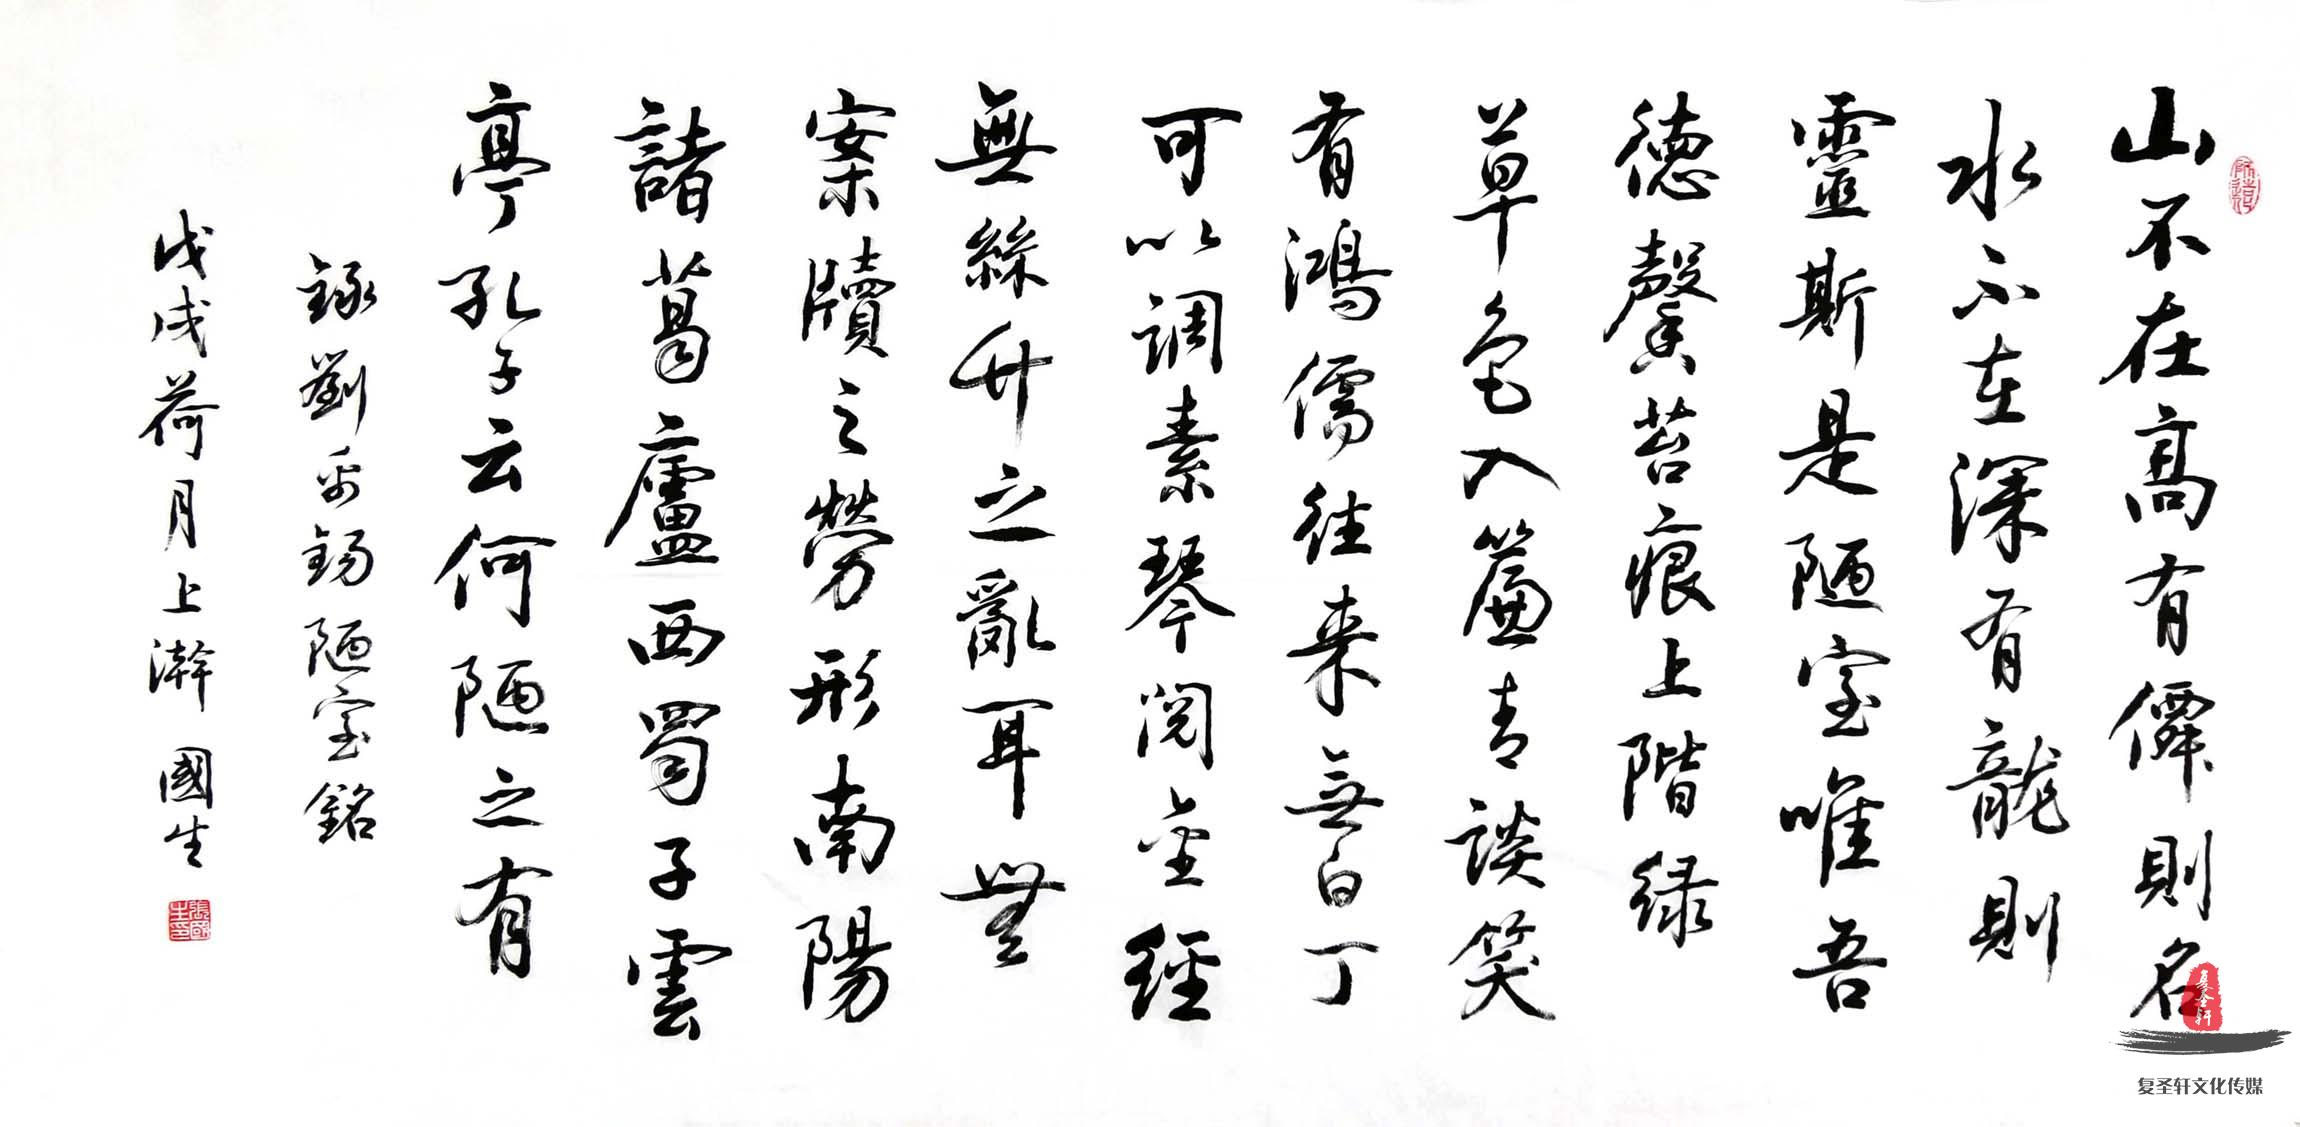 山不在高有僊則名
水不在深有龍則
靈斯是陋室唯吾
德馨苔痕上階緑
草色入簾青談笑
有鴻儒往来無白丁
可以調素琴閱金經
無絲竹之亂耳無
案牘之勞形南陽
諸葛廬西蜀子雲
亭孔子云何陋之有
錄劉禹錫陋室銘
戊戌荷月上澣 國生
張國生印
复圣轩
复圣轩文化传媒